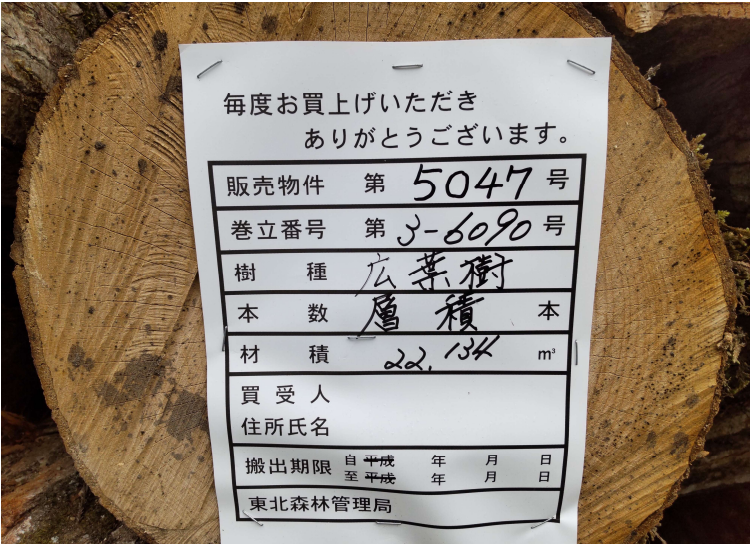 毎度お買上げいただき
ありがとうございます。
販売物件 第 5047 号
巻立番号 第 3-6090 号
樹 種 広葉樹
本 数 層積 本
材 積 22.134 m³
買受人
住所氏名
搬出期限 自 平成 年 月 日
至 平成 年 月 日
東北森林管理局